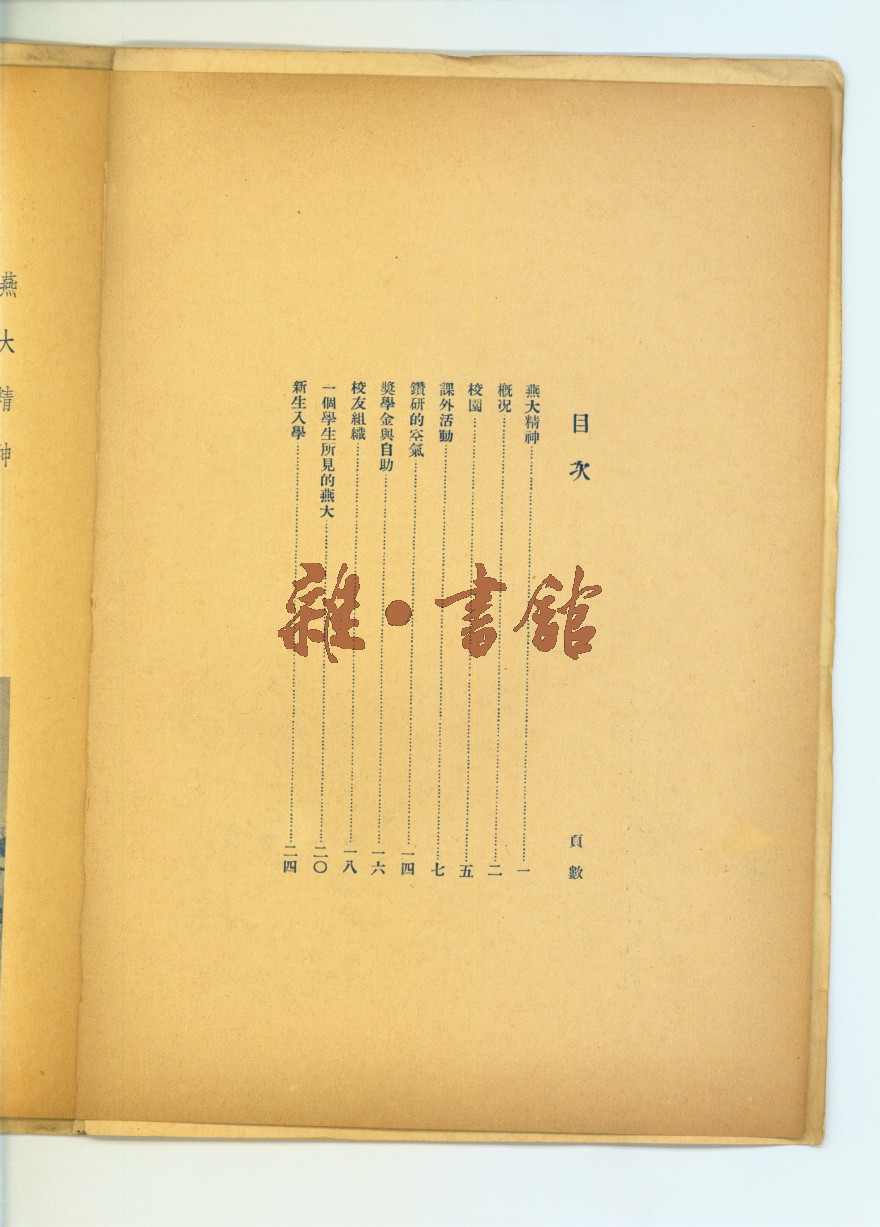 目次 頁數
燕大精神……一
概况……二
校園……五
課外活動……七
鑽研的空氣……一四
奬學金與自助……一六
校友組織……一八
一個學生所見的燕大……二〇
新生入學……二四
雜·書館
燕大精神